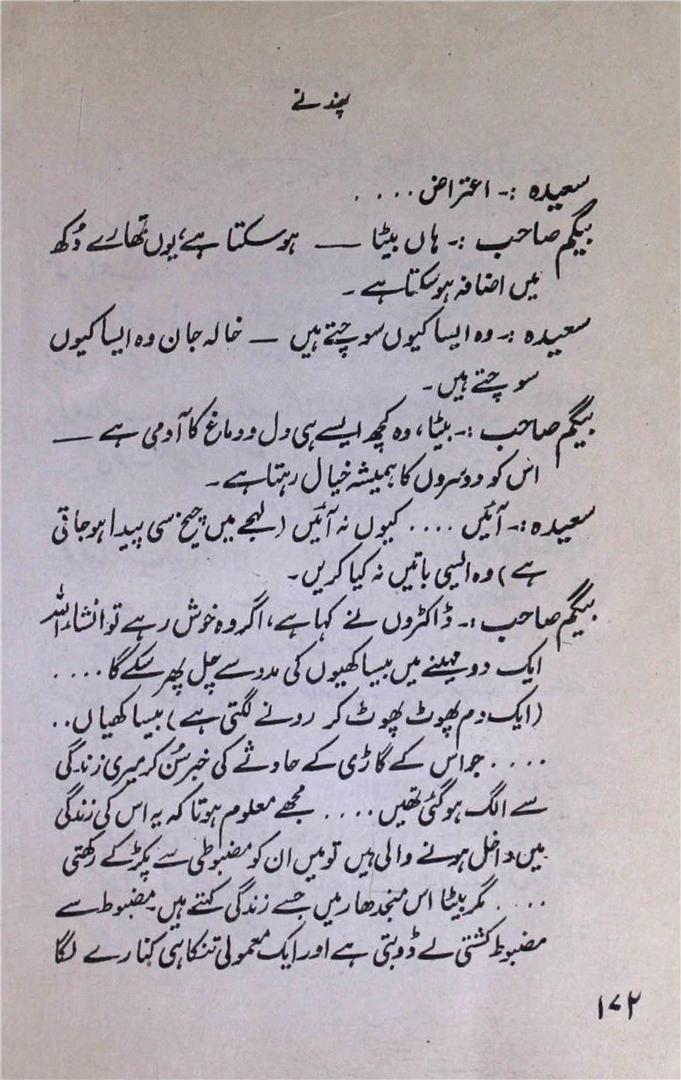 پھندنے
سعیدہ :۔ اعتراض . . . .
بیگم صاحب :۔ ہاں بیٹا — ہوسکتا ہے، یوں تمھارے دُکھ
میں اضافہ ہوسکتا ہے ۔
سعیدہ :۔ وہ ایسا کیوں سوچتے ہیں — خالہ جان وہ ایسا کیوں
سوچتے ہیں ۔
بیگم صاحب :۔ بیٹا، وہ کچھ ایسے ہی دل و دماغ کا آدمی ہے —
اس کو دوسروں کا ہمیشہ خیال رہتا ہے ۔
سعیدہ :۔ آئیں . . . . کیوں نہ آئیں (لہجے میں چیخ سی پیدا ہوجاتی
ہے) وہ ایسی باتیں نہ کیا کریں ۔
بیگم صاحب :۔ ڈاکٹروں نے کہا ہے، اگر وہ خوش رہے تو انشاءاللہ
ایک دو مہینے میں بیساکھیوں کی مدد سے چل پھر سکے گا . . . .
(ایک دم پھوٹ پھوٹ کر رونے لگتی ہے) بیساکھیاں . .
. . . . جو اس کے گاڑی کے حادثے کی خبر سُن کر میری زندگی
سے الگ ہوگئی تھیں . . . . مجھے معلوم ہوتا کہ یہ اس کی زندگی
میں داخل ہونے والی ہیں تو میں ان کو مضبوطی سے پکڑ کے رکھتی
. . . . مگر بیٹا اس منجدھار میں جسے زندگی کہتے ہیں ۔ مضبوط سے
مضبوط کشتی لے ڈوبتی ہے اور ایک معمولی تنکا ہی کنارے لگا
۱۷۲